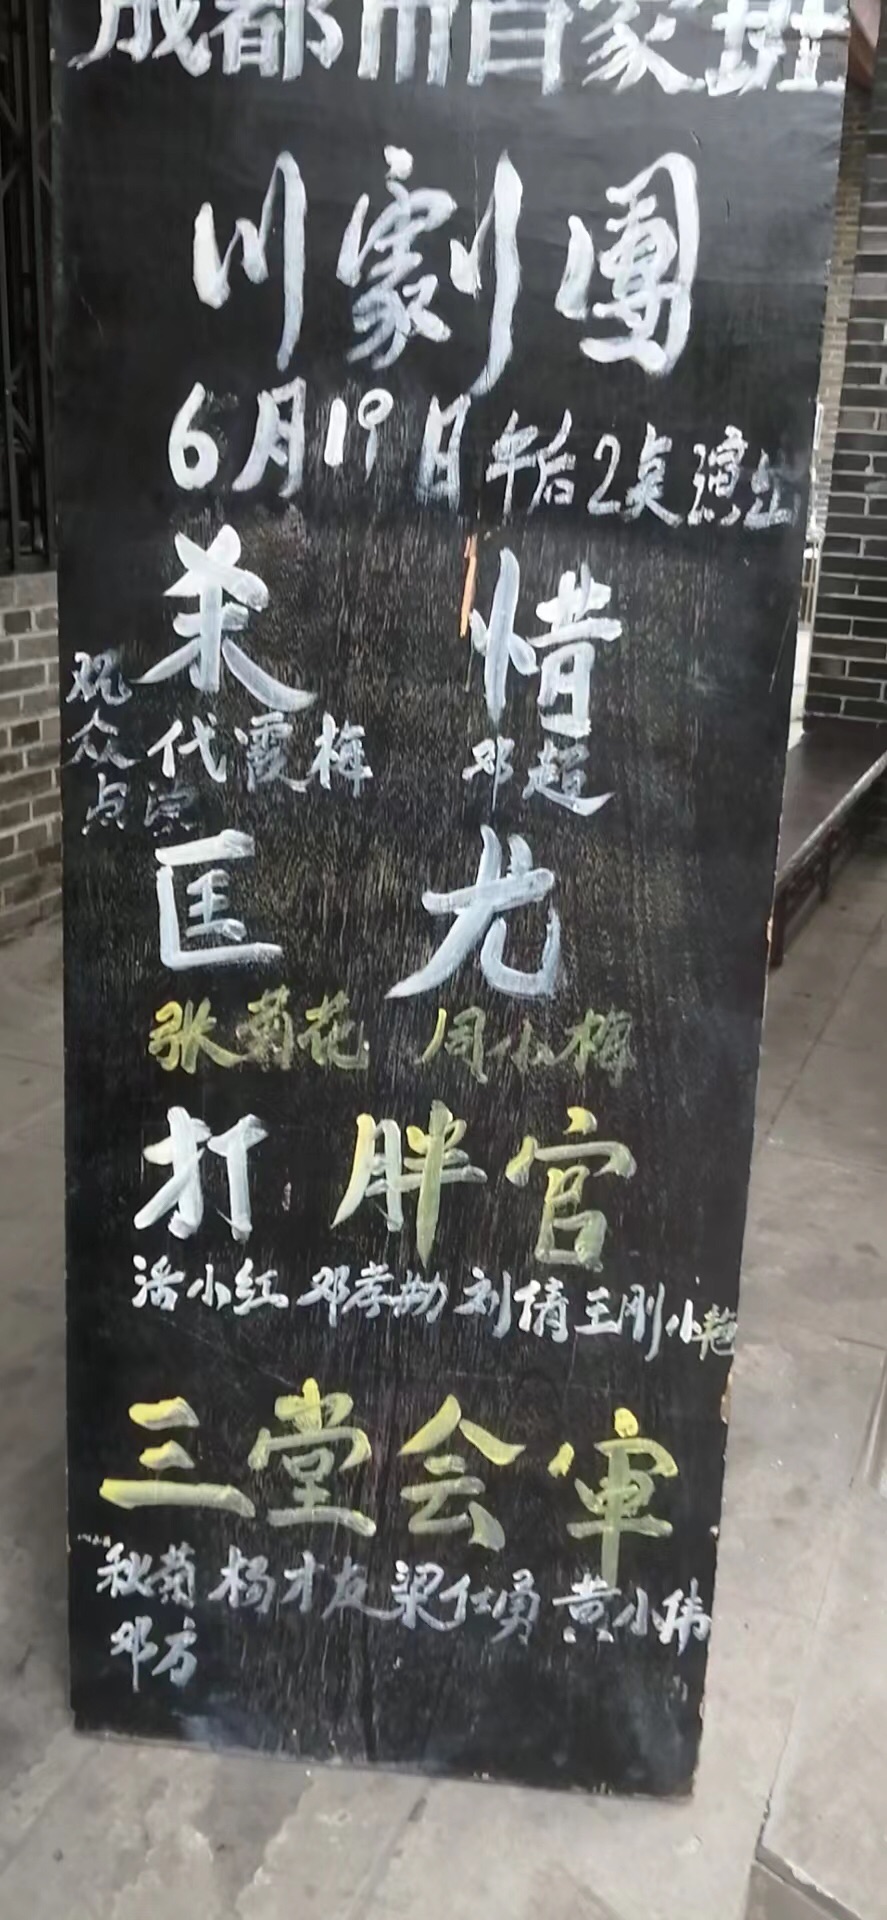 成都市百家班
川劇團
6月19日午后2点演出
杀 惜
观众点演
代霞梅 邓超
匡 尤
张菊花 周小梅
打胖官
潘小红 邓孝勤 刘倩 王刚 小艳
三堂会审
秋菊 杨才友 梁仕勇 黄小伟
邓方